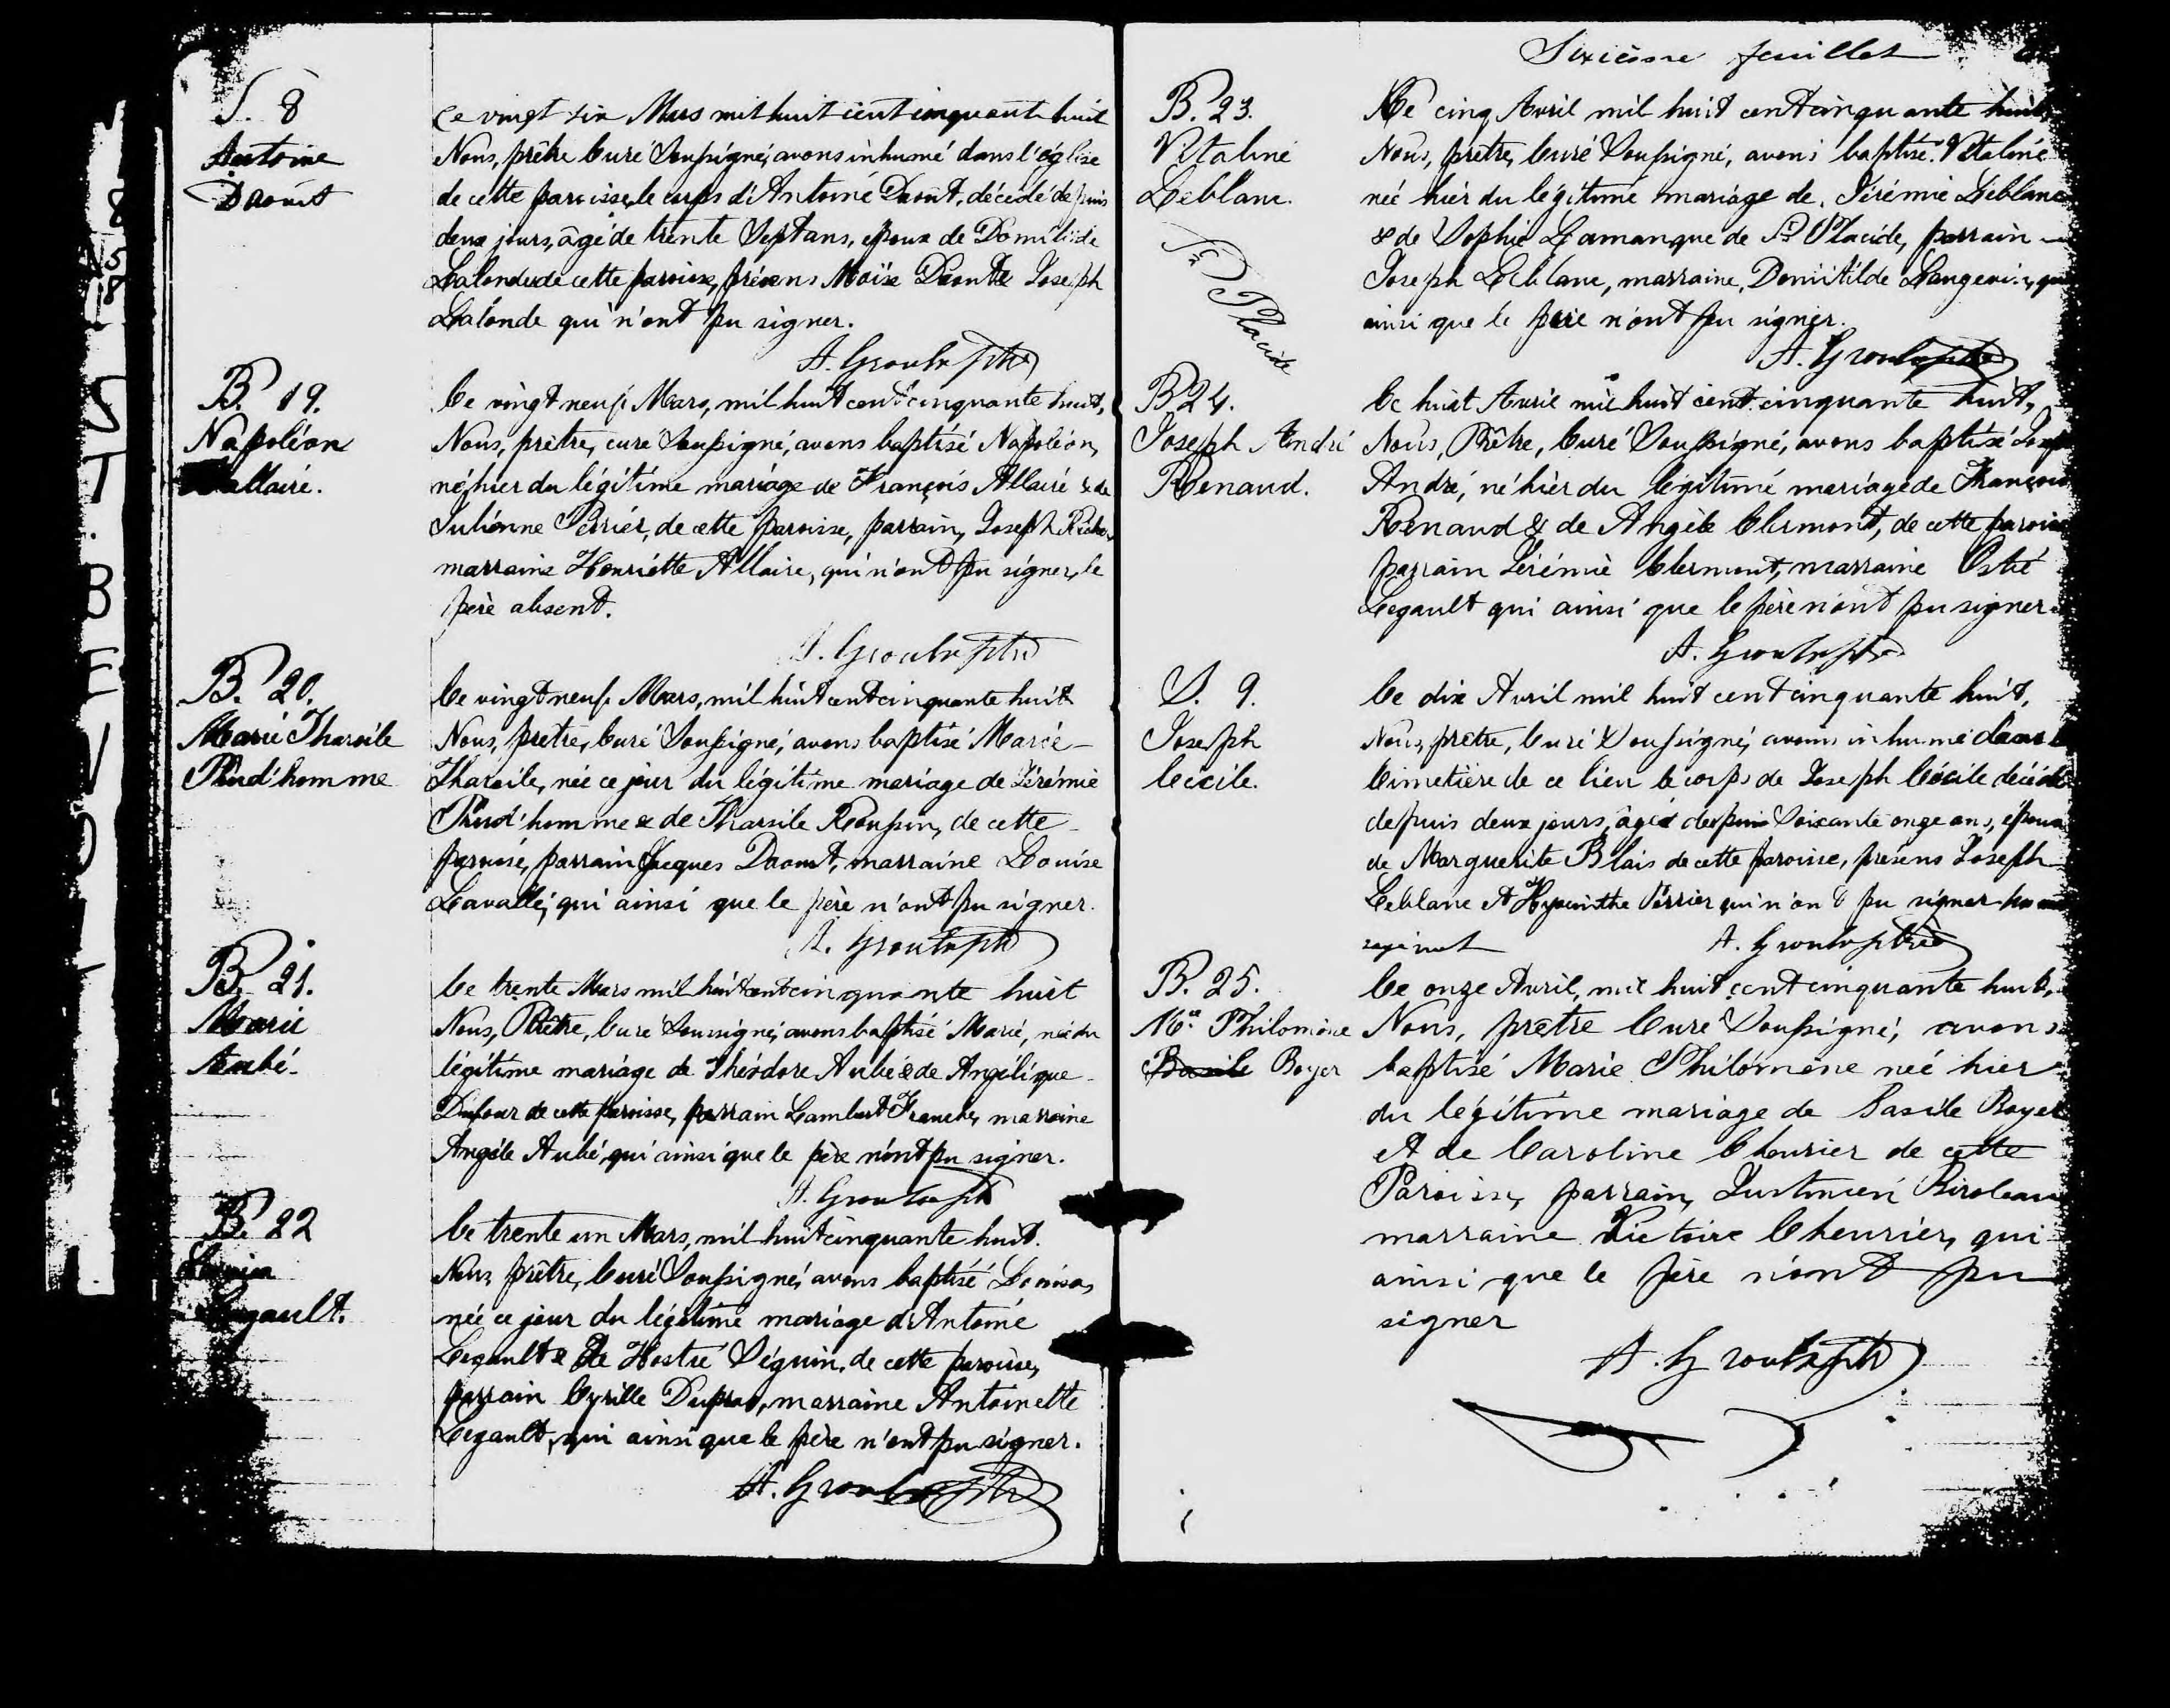 S. 8
Antoine
Daoust
Ce vingt six Mars mil huit cent cinquante huit
Nous, prêtre Curé Soussigné, avons inhumé dans l'église
de cette paroisse, le corps d'Antoine Daoust, décédé depuis
deux jours, âgé de trente Sept ans, époux de Domitilde
Lalonde de cette paroisse, présens Moïse Daoust & Joseph
Lalonde qui n'ont pu signer.
A. Groulx ptre
B. 19.
Napoléon
allaire.
Ce vingt neuf Mars, mil huit cent cinquante huit,
Nous, prêtre, curé Soussigné, avons baptisé Napoléon,
né hier du légitime mariage de François Allaire & de
Julienne Perrier, de cette paroisse, parrain, Joseph
marraine Henriette Allaire, qui n'ont pu signer, le
père absent.
A. Groulx ptre
B. 20.
Marie Tharsile
Prud'homme
Ce vingt neuf Mars, mil huit cent cinquante huit
Nous, prêtre, Curé Soussigné, avons baptisé Marie
Tharsile, née ce jour du légitime mariage de Jérémie
Prud'homme & de Tharsile Roupin, de cette
paroisse, parrain Jacques Daoust, marraine Louise
Lavallé, qui ainsi que le père n'ont pu signer.
A. Groulx ptre
B. 21.
Marie
Aubé.
Ce trente Mars mil huit cent cinquante huit
Nous, Prêtre, Curé Soussigné, avons baptisé Marie, née du
légitime mariage de Théodore Aubé & de Angélique
Dufour de cette paroisse, parrain Lambert Franche, marraine
Angèle Aubé, qui ainsi que le père n'ont pu signer.
A. Groulx ptre
B. 22
Legault.
Ce trente un Mars, mil huit cinquante huit.
Nous, prêtre, Curé Soussigné, avons baptisé
née ce jour du légitime mariage d'Antoine
Legault & de Hostre Séguin, de cette paroisse,
parrain Cyrille Dupras, marraine Antoinette
Legault, qui ainsi que le père n'ont pu signer.
A. Groulx ptre
Sixième feuillet
B. 23.
Vitaline
Leblanc.
St Placide
Ce cinq Avril mil huit cent cinquante huit,
Nous, prêtre, Curé Soussigné, avons baptisé Vitaline
née hier du légitime mariage de Jérémie Leblanc
& de Sophie Lamanque de St Placide, parrain
Joseph Leblanc, marraine, Domitilde Langevin, qui
ainsi que le père n'ont pu signer.
A. Groulx ptre
B 24.
Joseph André
Renaud.
Ce huit Avril mil huit cent cinquante huit,
Nous, Prêtre, Curé Soussigné, avons baptisé Joseph
André, né hier du légitime mariage de François
Renaud & de Angèle Clermont, de cette paroisse
parrain Jérémie Clermont, marraine Ostré
Legault qui ainsi que le père n'ont pu signer
A. Groulx ptre
S. 9.
Joseph
Cécile.
Ce dix Avril mil huit cent cinquante huit,
Nous, prêtre, Curé Soussigné, avons inhumé dans le
Cimetière de ce lieu le corps de Joseph Cécile décédé
depuis deux jours, âgé depuis Soixante onze ans, époux
de Marguerite Blais de cette paroisse, présens Joseph
Leblanc et Hyacinthe Perrier qui n'ont pu signer
A. Groulx ptre
B. 25.
Me Philomène
Basile Boyer
Ce onze Avril, mil huit cent cinquante huit,
Nous, prêtre Curé Soussigné, avons
baptisé Marie Philomène née hier
du légitime mariage de Basile Boyer
et de Caroline Cheurier de cette
Paroisse, parrain, Justinien Biroleau
marraine Victoire Cheurier, qui
ainsi que le père n'ont pu
signer
A. Groulx ptre